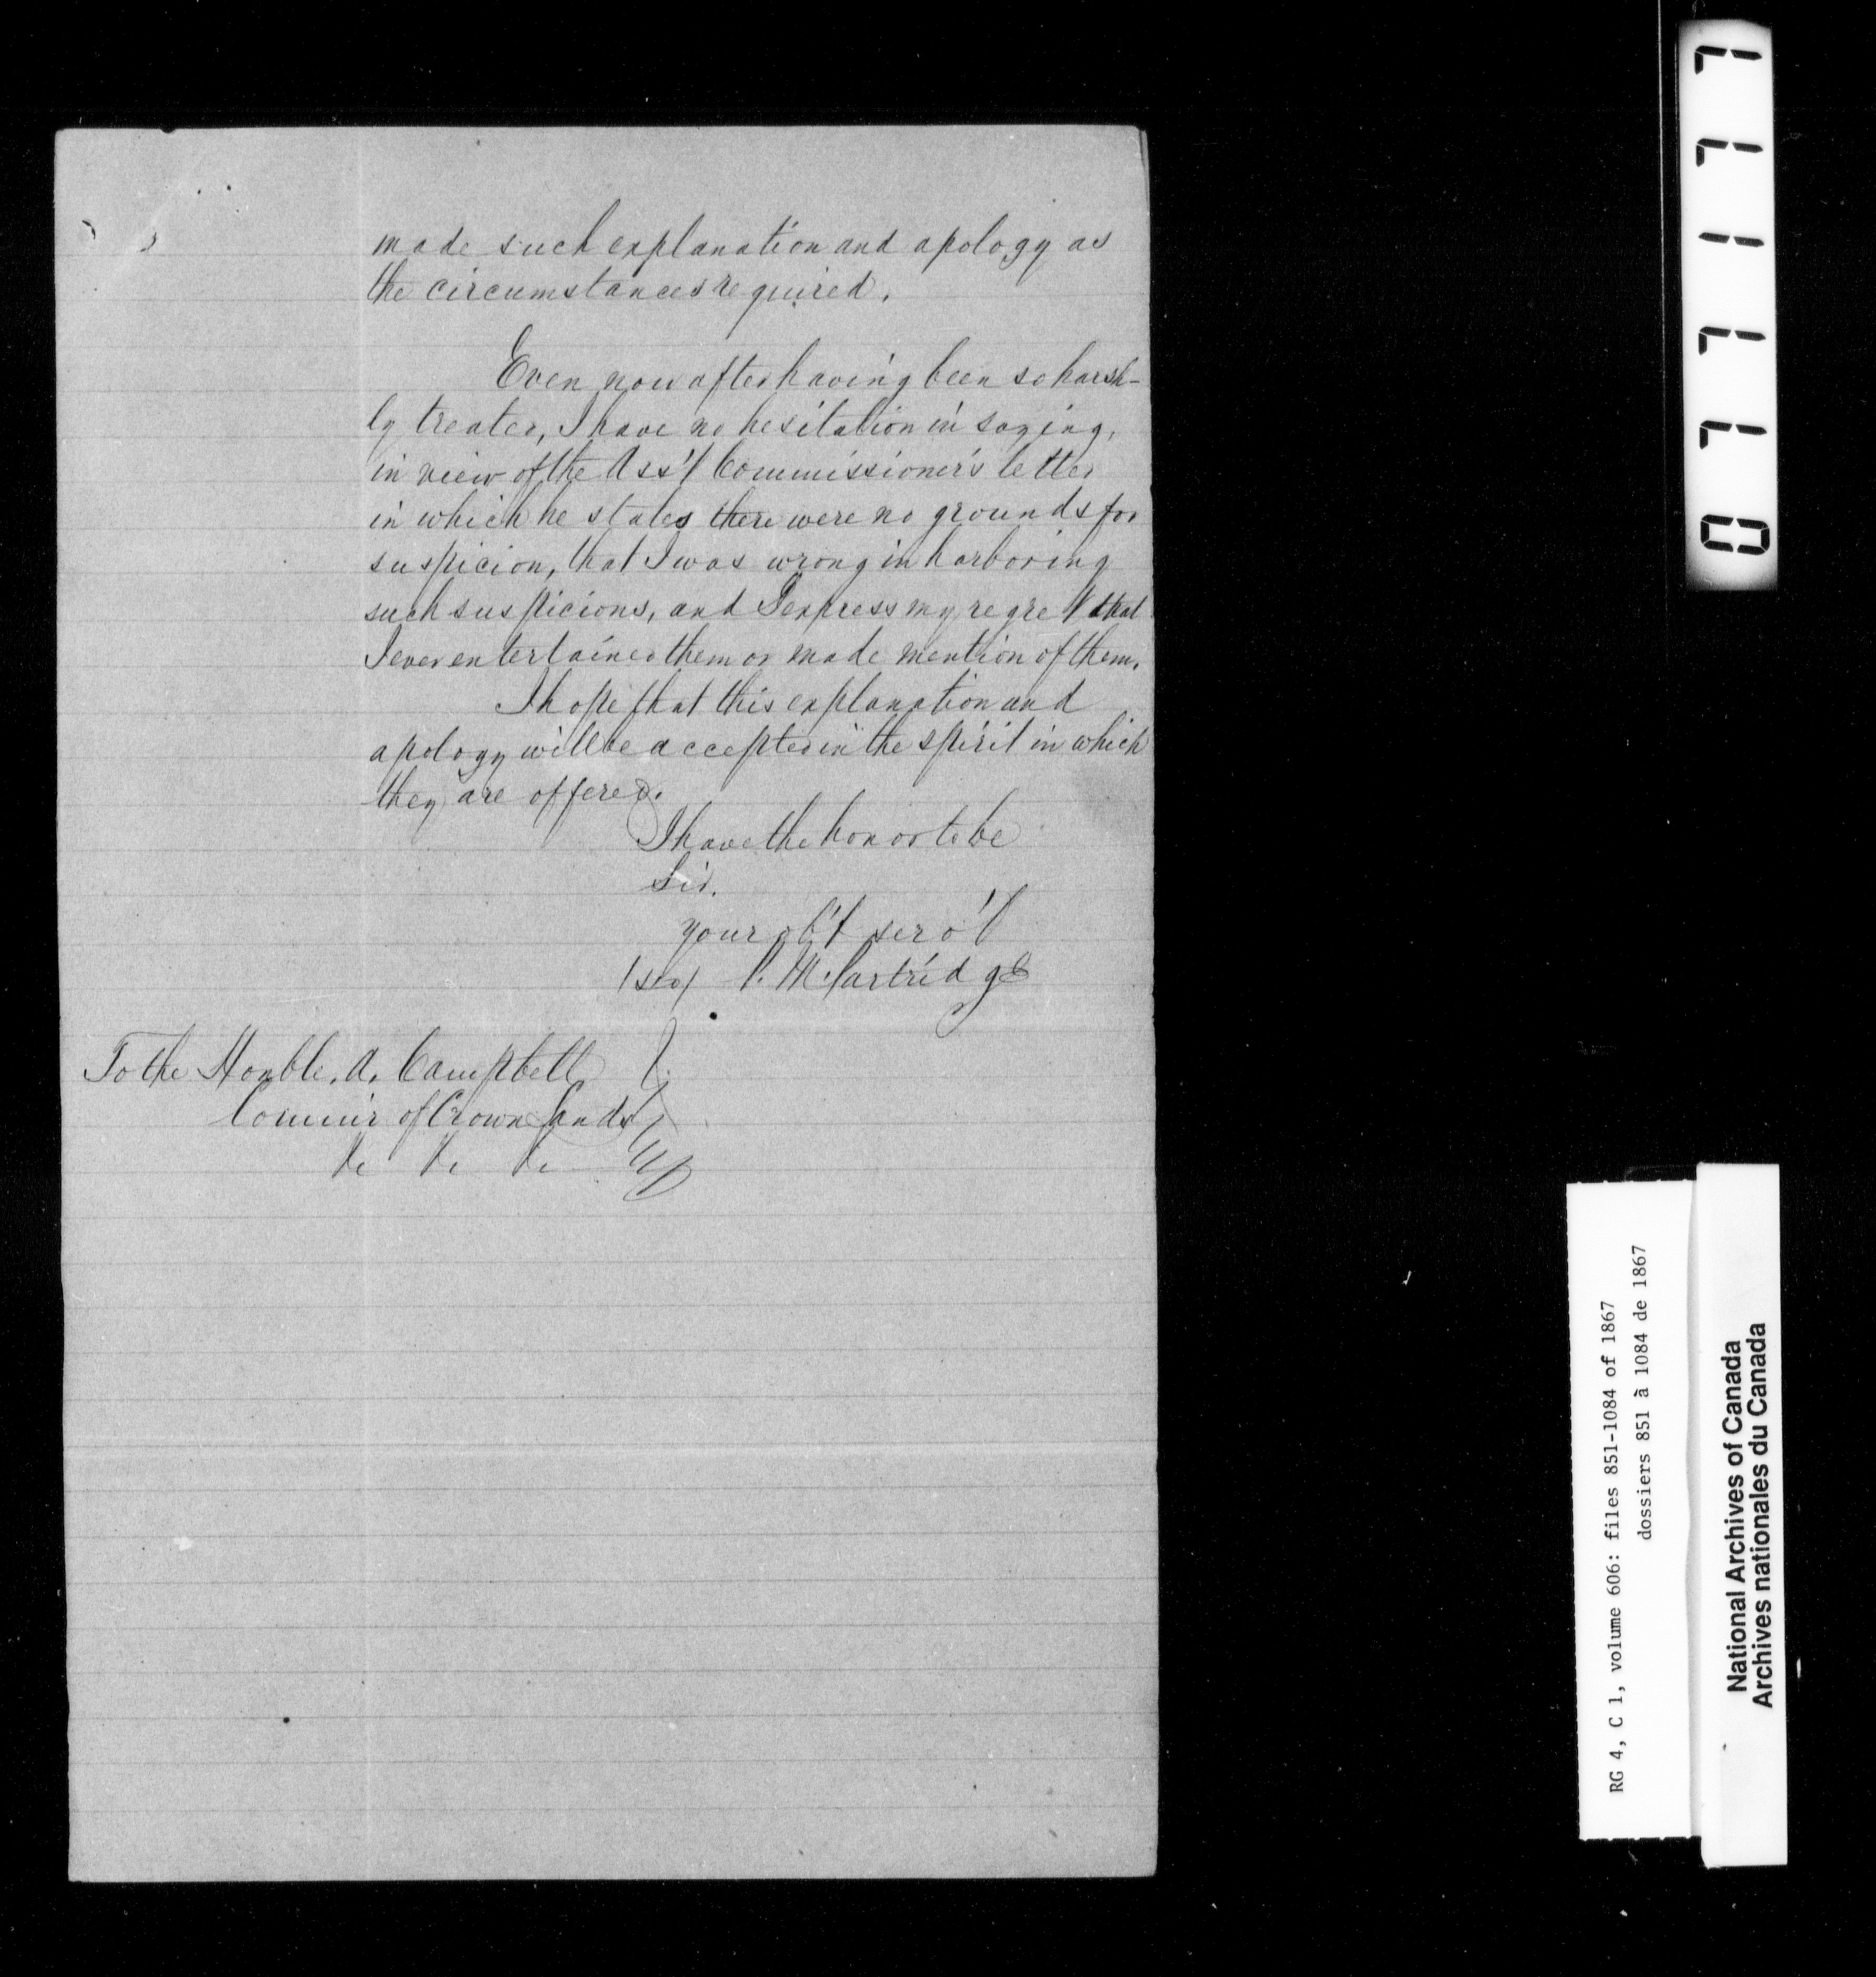 made such explanation and apology as
the circumstances required.
Even now after having been so harsh-
ly treated, I have no hesitation in saying,
in view of the Ass't Commissioner's letter
in which he states there were no grounds for
suspicion, that I was wrong in harboring
such suspicions, and I express my regret that
I ever entertained them or made mention of them.
I hope that this explanation and
apology will be accepted in the spirit in which
they are offered.
I have the honor to be
Sir,
your ob't serv't
(sd) P. M. Partridge
To the Honble. A. Campbell
Commr of Crown Lands
&c &c &c
0771177
RG 4, C 1, volume 606: files 851-1084 of 1867
dossiers 851 à 1084 de 1867
National Archives of Canada
Archives nationales du Canada